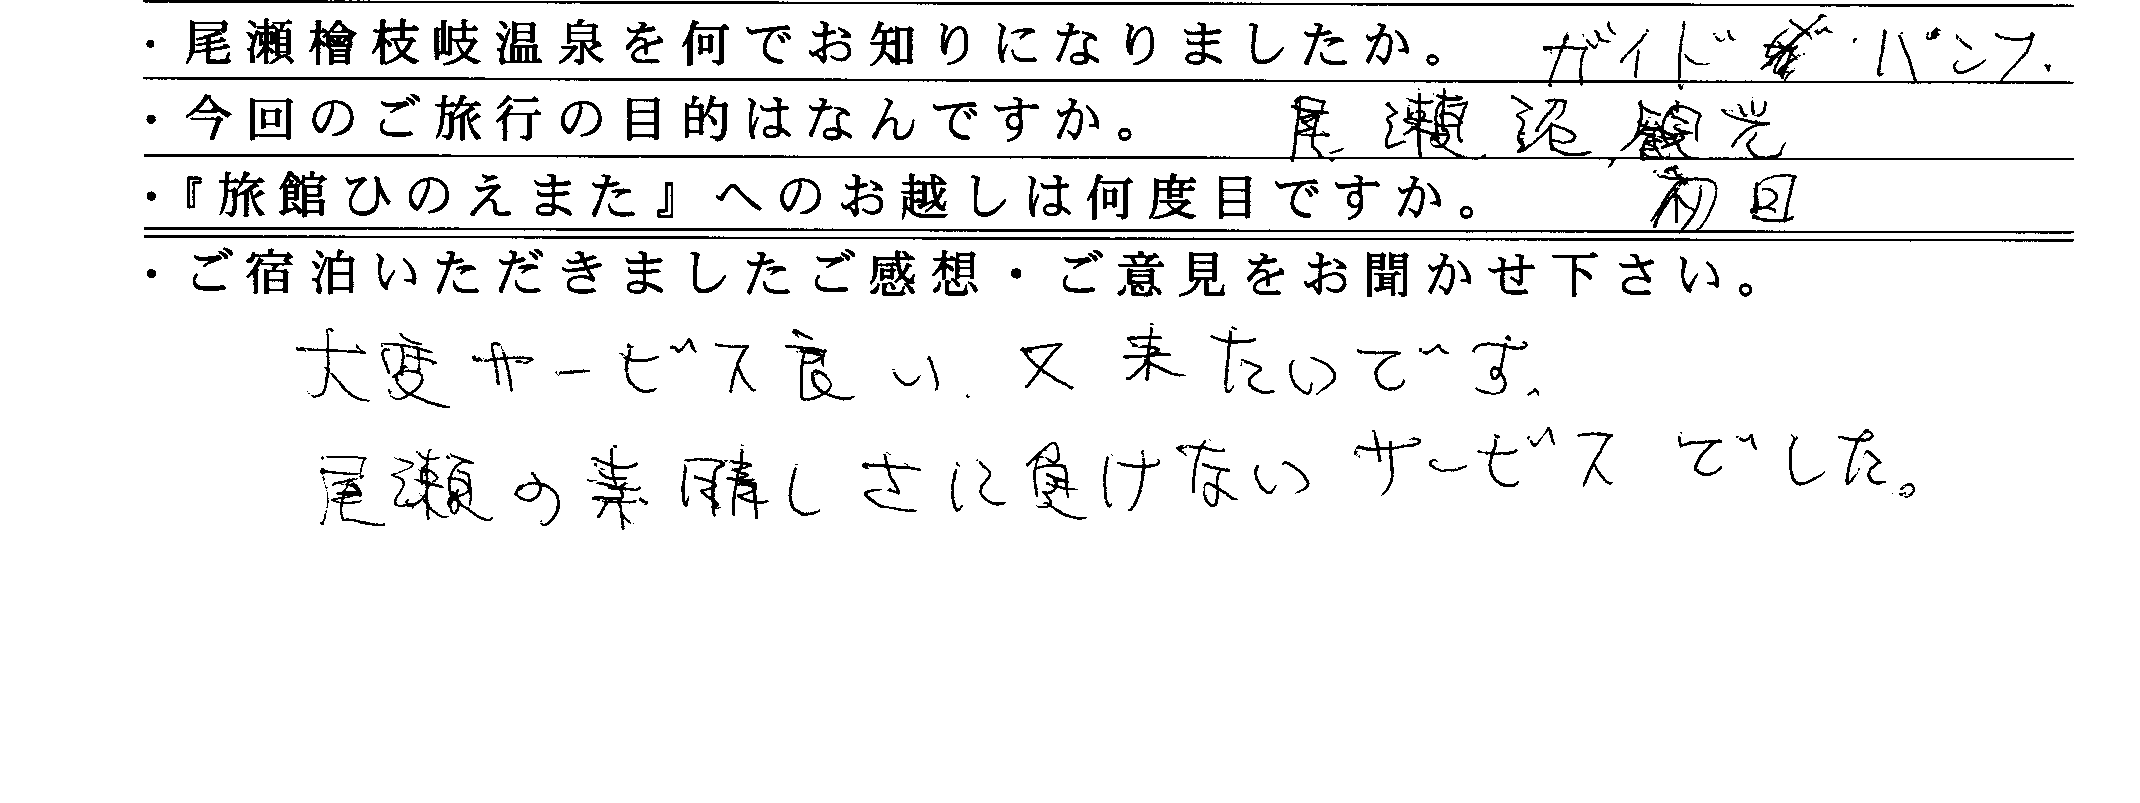 ・尾瀬檜枝岐温泉を何でお知りになりましたか。 ガイド・パンフ.
・今回のご旅行の目的はなんですか。 尾瀬沼,観光
・『旅館ひのえまた』へのお越しは何度目ですか。 初回
・ご宿泊いただきましたご感想・ご意見をお聞かせ下さい。
大変サービス良い. 又来たいです.
尾瀬の素晴しさに負けないサービスでした。